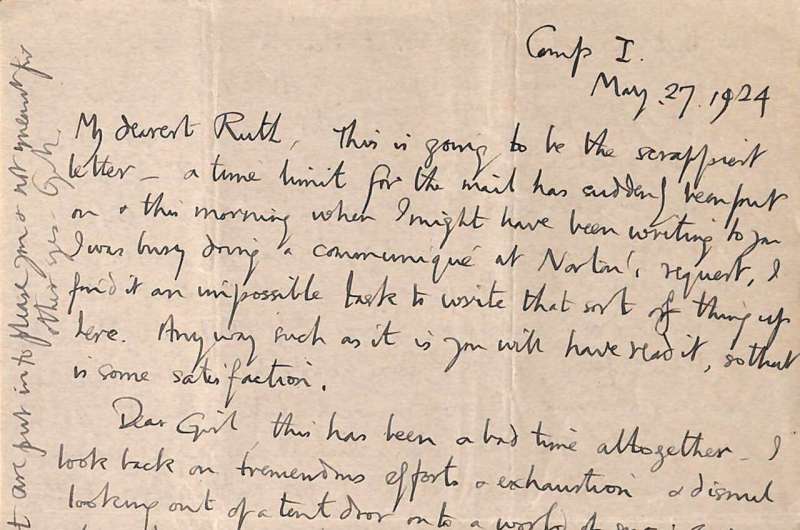 Camp I.
May. 27. 1924
My dearest Ruth, This is going to be the scrappiest
letter – a time limit for the mail has suddenly been put
on & this morning when I might have been writing to you
I was busy doing a communiqué at Norton's request, I
find it an impossible task to write that sort of thing up
here. Anyway such as it is you will have read it, so that
is some satisfaction.
Dear Girl, this has been a bad time altogether – I
look back on tremendous efforts & exhaustion & dismal
looking out of a tent door on to a world of snow &
are put in to please you & not meant for
other eyes – G.